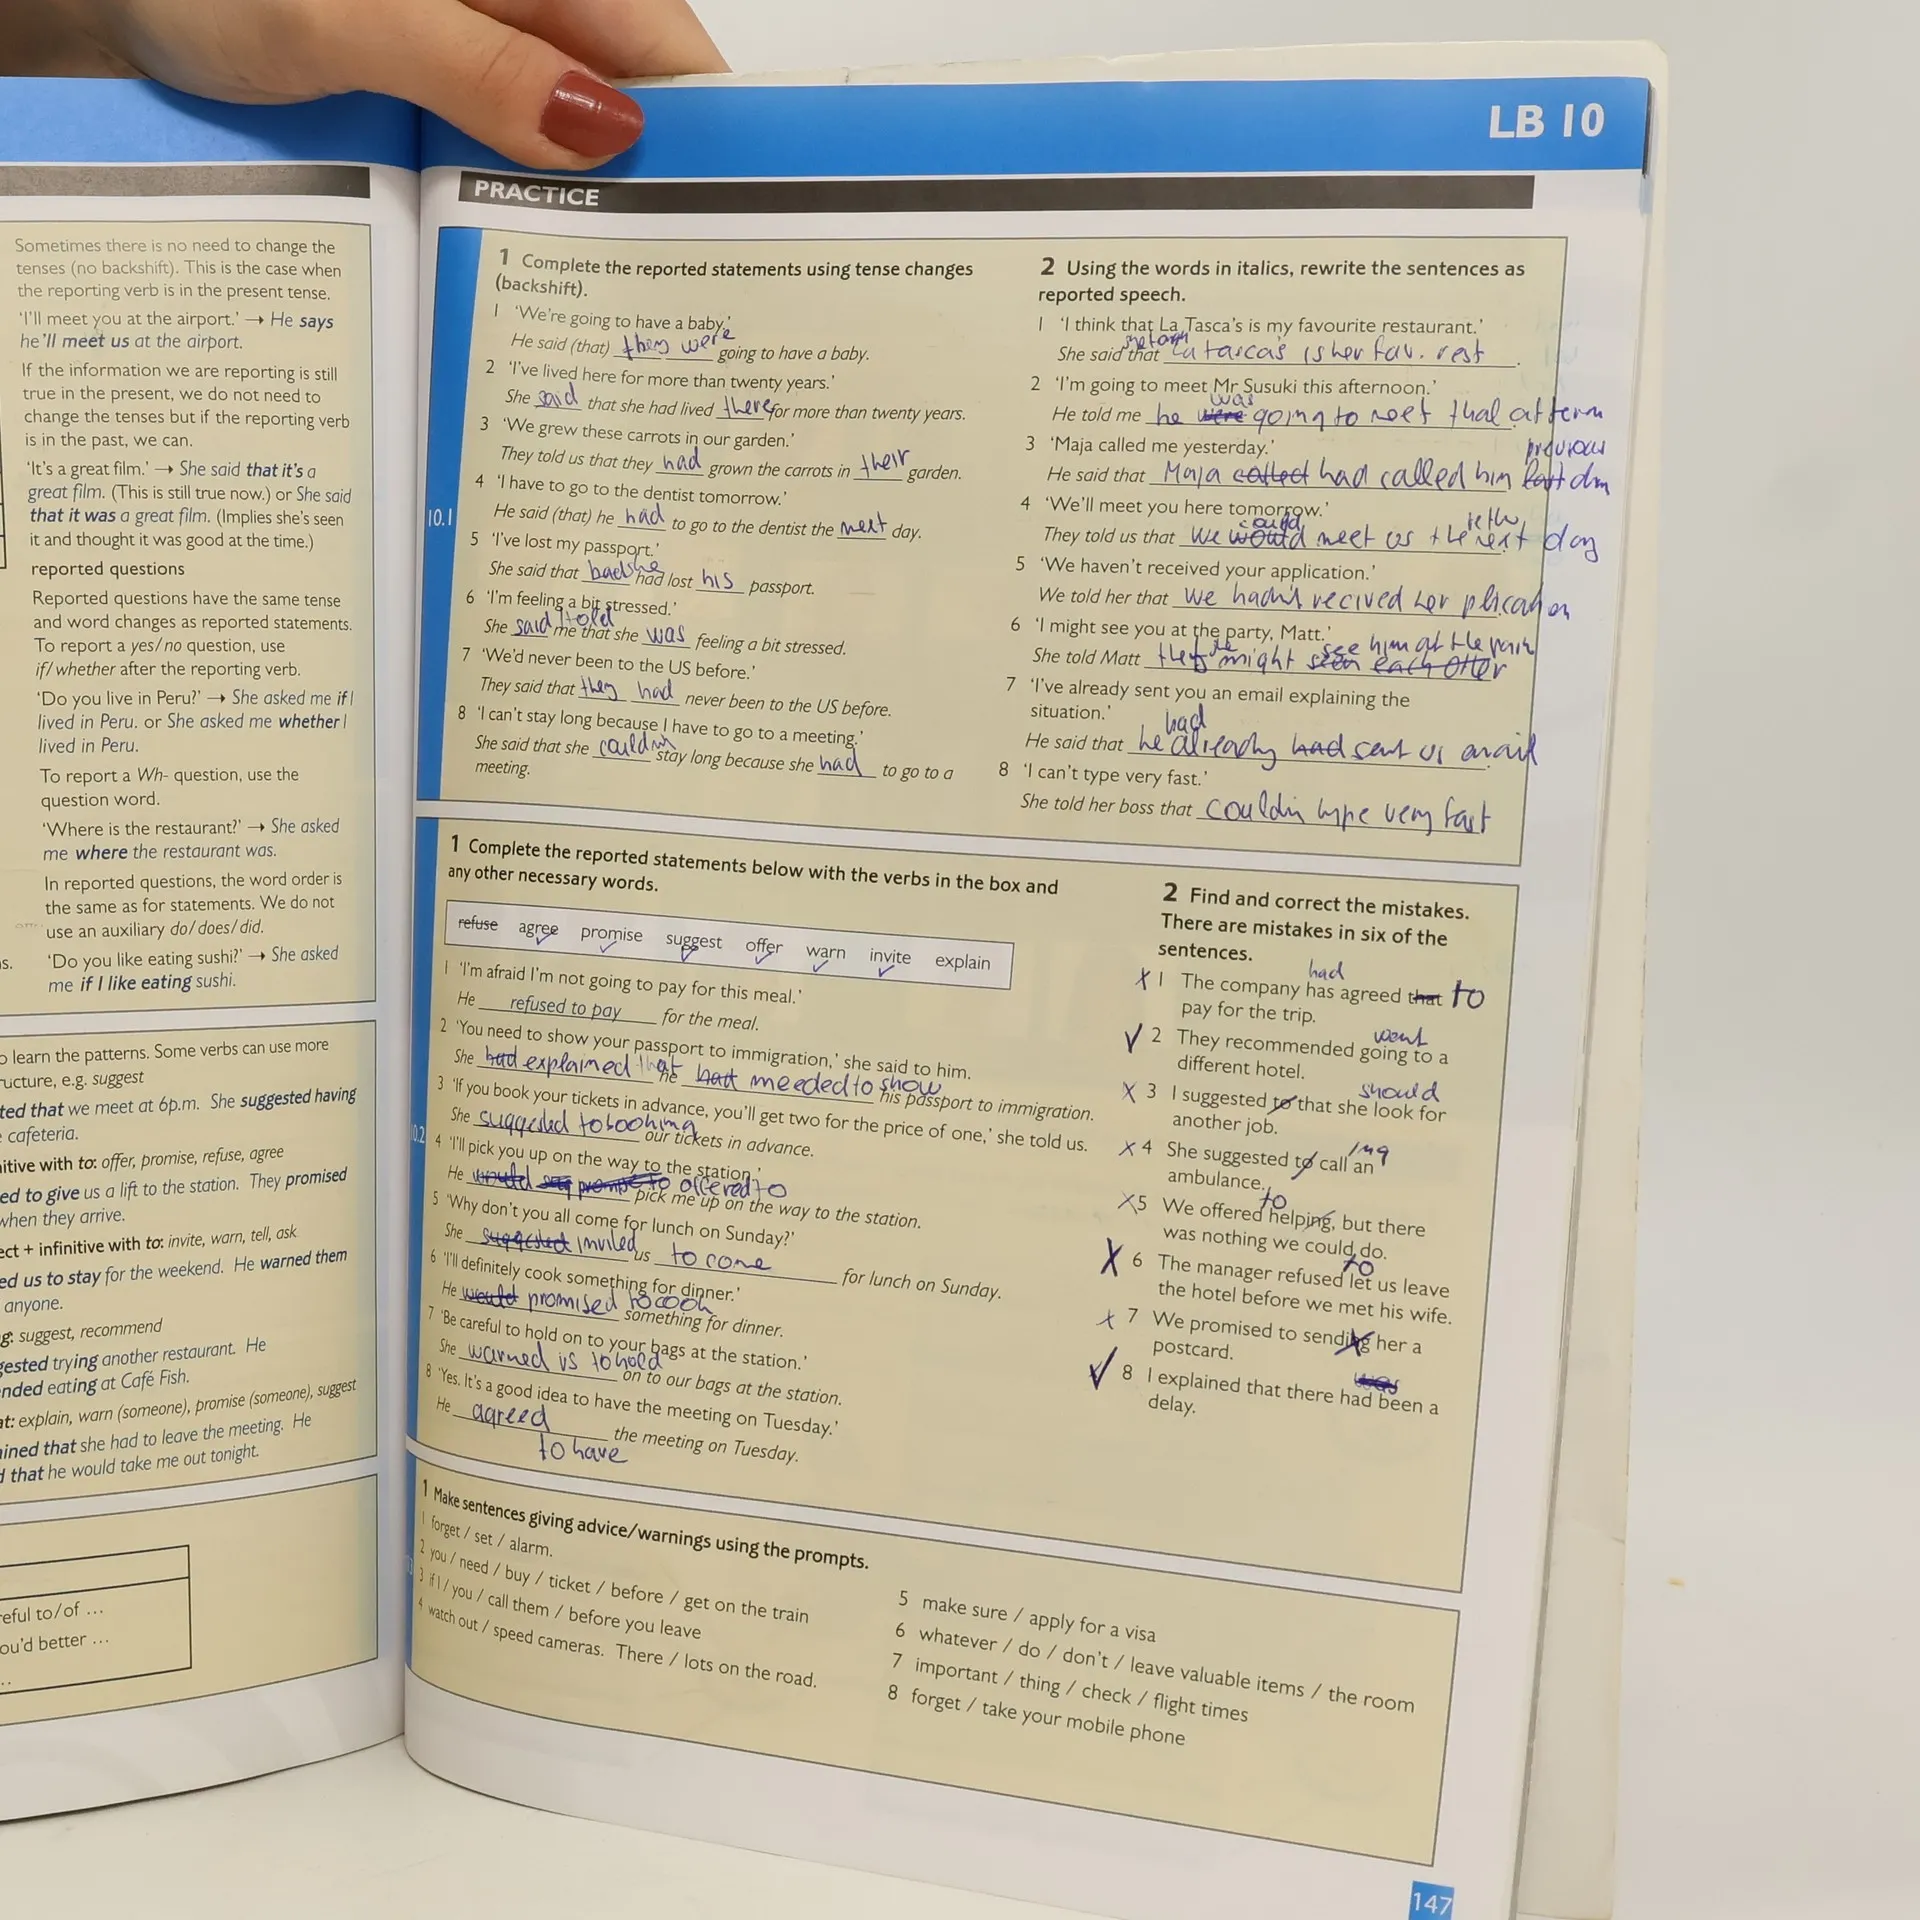 LB 10
PRACTICE
Sometimes there is no need to change the
tenses (no backshift). This is the case when
the reporting verb is in the present tense.
'I'll meet you at the airport.' → He says
he'll meet us at the airport.
If the information we are reporting is still
true in the present, we do not need to
change the tenses but if the reporting verb
is in the past, we can.
'It's a great film.' → She said that it's a
great film. (This is still true now.) or She said
that it was a great film. (Implies she's seen
it and thought it was good at the time.)
reported questions
Reported questions have the same tense
and word changes as reported statements.
To report a yes/no question, use
if/whether after the reporting verb.
'Do you live in Peru?' → She asked me if I
lived in Peru. or She asked me whether I
lived in Peru.
To report a Wh- question, use the
question word.
'Where is the restaurant?' → She asked
me where the restaurant was.
In reported questions, the word order is
the same as for statements. We do not
use an auxiliary do/does/did.
'Do you like eating sushi?' → She asked
me if I like eating sushi.
o learn the patterns. Some verbs can use more
ructure, e.g. suggest
ted that we meet at 6p.m. She suggested having
cafeteria.
nitive with to: offer, promise, refuse, agree
ed to give us a lift to the station. They promised
when they arrive.
ect + infinitive with to: invite, warn, tell, ask
ed us to stay for the weekend. He warned them
anyone.
g: suggest, recommend
gested trying another restaurant. He
nded eating at Café Fish.
at: explain, warn (someone), promise (someone), suggest
ained that she had to leave the meeting. He
d that he would take me out tonight.
reful to/of ...
ou'd better ...
10.1
1 Complete the reported statements using tense changes
(backshift).
1 'We're going to have a baby.'
He said (that) they were going to have a baby.
2 'I've lived here for more than twenty years.'
She said that she had lived there for more than twenty years.
3 'We grew these carrots in our garden.'
They told us that they had grown the carrots in their garden.
4 'I have to go to the dentist tomorrow.'
He said (that) he had to go to the dentist the next day.
5 'I've lost my passport.'
She said that she had lost his passport.
6 'I'm feeling a bit stressed.'
She said/told me that she was feeling a bit stressed.
7 'We'd never been to the US before.'
They said that they had never been to the US before.
8 'I can't stay long because I have to go to a meeting.'
She said that she couldn stay long because she had to go to a
meeting.
2 Using the words in italics, rewrite the sentences as
reported speech.
1 'I think that La Tasca's is my favourite restaurant.'
She said that La tasca's is her fav. rest
2 'I'm going to meet Mr Susuki this afternoon.'
was
He told me he were going to meet that
3 'Maja called me yesterday.'
previous
He said that Maja called had called him last
4 'We'll meet you here tomorrow.'
could
They told us that we would meet us the next day
5 'We haven't received your application.'
We told her that we hadn't recived her plication
6 'I might see you at the party, Matt.'
see him at the
She told Matt might seen each other
7 'I've already sent you an email explaining the
situation.'
had
He said that he already had sent us
8 'I can't type very fast.'
She told her boss that couldn type very fast
10.2
1 Complete the reported statements below with the verbs in the box and
any other necessary words.
refuse agree promise suggest offer warn invite explain
1 'I'm afraid I'm not going to pay for this meal.'
He refused to pay for the meal.
2 'You need to show your passport to immigration,' she said to him.
She had explained that he had needed to show his passport to immigration.
3 'If you book your tickets in advance, you'll get two for the price of one,' she told us.
She suggested to booking our tickets in advance.
4 'I'll pick you up on the way to the station.'
He would offered to pick me up on the way to the station.
5 'Why don't you all come for lunch on Sunday?'
She suggested invited us to come for lunch on Sunday.
6 'I'll definitely cook something for dinner.'
He would promised to cook something for dinner.
7 'Be careful to hold on to your bags at the station.'
She warned us to hold on to our bags at the station.
8 'Yes. It's a good idea to have the meeting on Tuesday.'
He agreed the meeting on Tuesday.
to have
2 Find and correct the mistakes.
There are mistakes in six of the
sentences.
had
X 1 The company has agreed that to
pay for the trip.
went
✓ 2 They recommended going to a
different hotel.
should
X 3 I suggested to that she look for
another job.
ing
X 4 She suggested to call an
ambulance.
to
X 5 We offered helping, but there
was nothing we could do.
to
X 6 The manager refused let us leave
the hotel before we met his wife.
X 7 We promised to sending her a
postcard.
was
✓ 8 I explained that there had been a
delay.
1 Make sentences giving advice/warnings using the prompts.
1 forget / set / alarm.
2 you / need / buy / ticket / before / get on the train
3 if I / you / call them / before you leave
4 watch out / speed cameras. There / lots on the road.
5 make sure / apply for a visa
6 whatever / do / don't / leave valuable items / the room
7 important / thing / check / flight times
8 forget / take your mobile phone
147